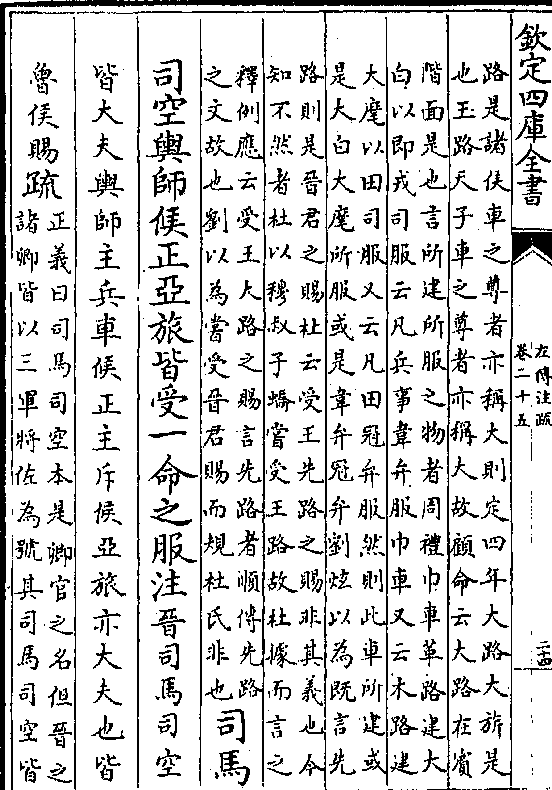 欽定四庫全書
左傳注疏
卷二十五
二十四
路是諸侯車之尊者亦稱大則定四年大路大旂是
也玉路天子車之尊者亦稱大故顧命云大路在賓
階面是也言所建所服之物者周禮巾車革路建大
白以即戎司服云凡兵事韋弁服巾車又云木路建
大麾以田司服又云凡田冠弁服然則此車所建或
是大白大麾所服或是韋弁冠弁劉炫以為既言先
路則是晉君之賜杜云受王先路之賜非其義也今
知不然者杜以穆叔子蟜嘗受王路故杜據而言之
釋例應云受王大路之賜言先路者順傳先路
之文故也劉以為嘗受晉君賜而規杜氏非也
司馬
司空輿師侯正亞旅皆受一命之服注晉司馬司空
皆大夫輿師主兵車侯正主斥侯亞旅亦大夫也皆
魯侯賜疏
正義曰司馬司空本是卿官之名但晉之
諸卿皆以三軍將佐為號其司馬司空皆